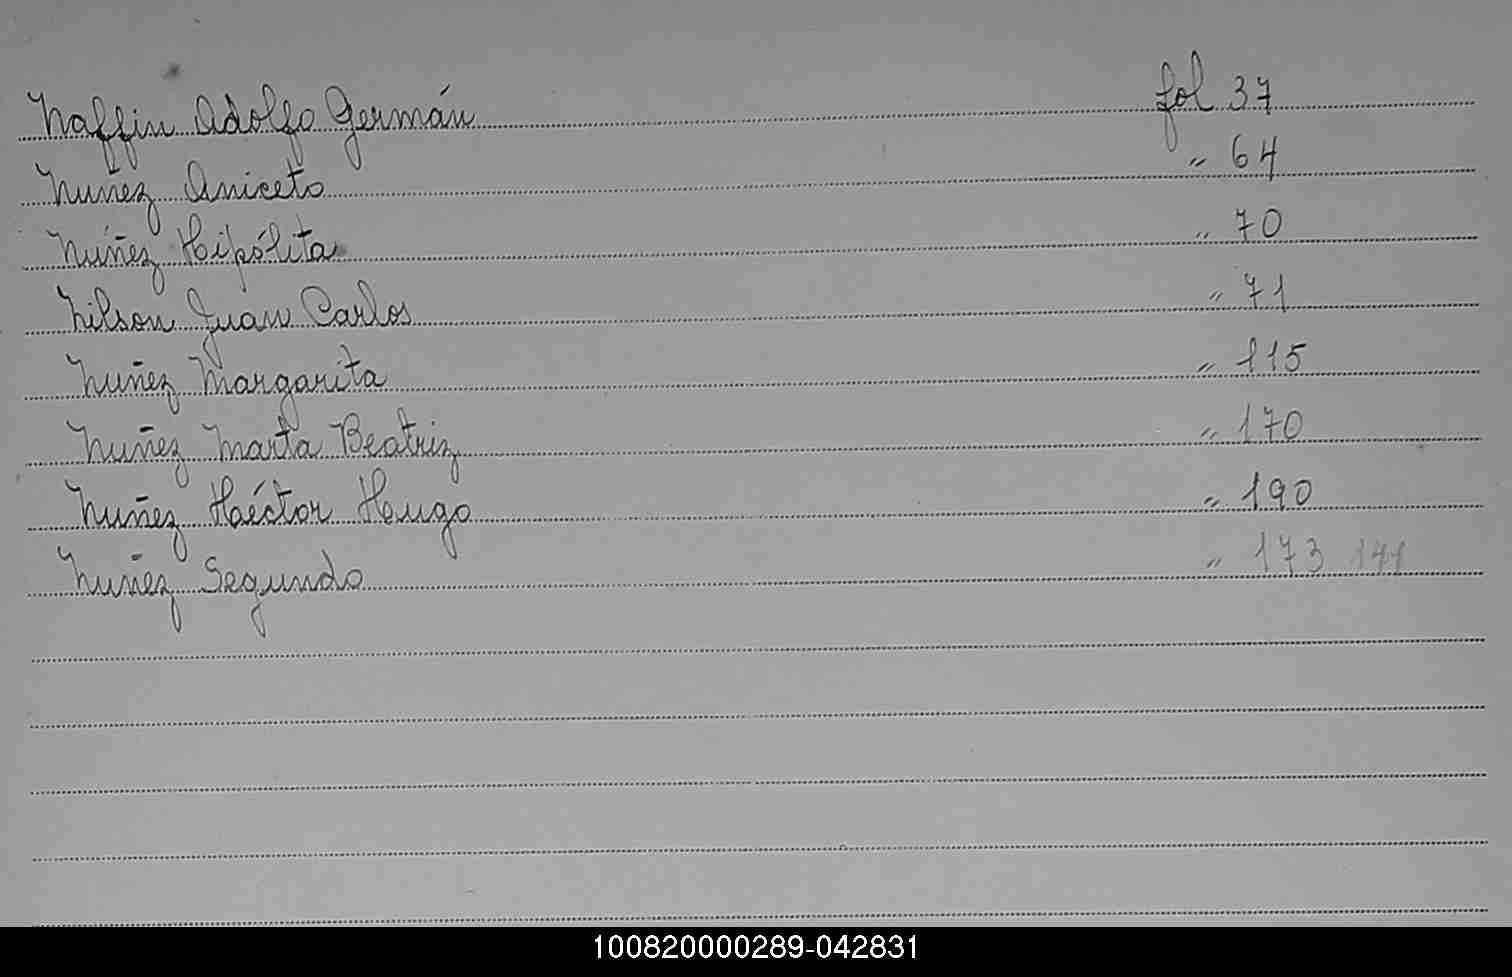 Naffin Adolfo Germán fol 37
Nuñez Aniceto " 64
Núñez Hipólita " 70
Nilson Juan Carlos " 71
Nuñez Margarita " 115
Nuñez Marta Beatriz " 170
Nuñez Héctor Hugo " 190
Nuñez Segundo " 173
100820000289-042831